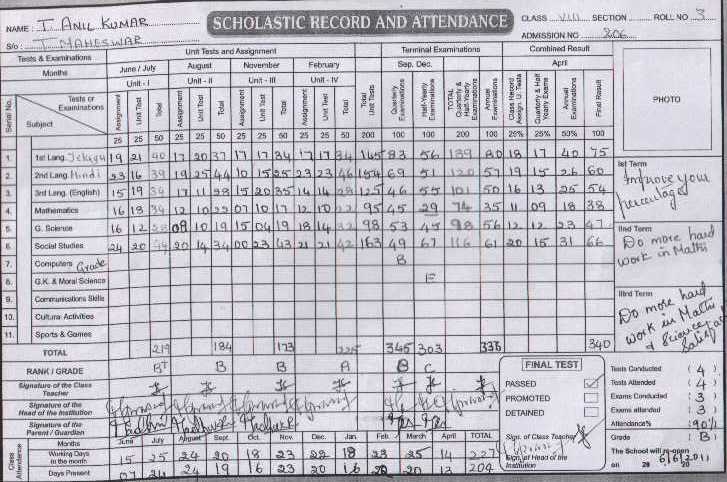 NAME : T. ANIL KUMAR
SCHOLASTIC RECORD AND ATTENDANCE
CLASS VIII SECTION ROLL NO 3
S/o : T. MAHESWAR
ADMISSION NO 806
Tests & Examinations Unit Tests and Assignment Terminal Examinations Combined Result
Months June / July August November February Sep. Dec. April
Unit - I Unit - II Unit - III Unit - IV
Serial No. Tests or Examinations Subject Assignment Unit Test Total Assignment Unit Test Total Assignment Unit Test Total Assignment Unit Test Total Total Unit Tests Quarterly Examinations Half-Yearly Examinations TOTAL Quarterly & Half-Yearly Examinations Annual Examinations Class Record Assign. U. Tests Quarterly & Half Yearly Exams Annual Examinations Final Result
PHOTO
25 25 50 25 25 50 25 25 50 25 25 50 200 100 100 200 100 25% 25% 50% 100
1. 1st Lang. Telugu 19 21 40 17 20 37 17 17 34 17 17 34 145 83 56 139 80 18 17 40 75
2. 2nd Lang. Hindi 23 16 39 19 25 44 10 15 25 23 23 46 154 69 51 120 57 19 15 26 60
3. 3rd Lang. (English) 15 19 34 17 11 28 15 20 35 14 14 28 125 46 55 101 50 16 13 25 54
4. Mathematics 16 18 34 12 10 22 07 10 17 12 10 22 95 45 29 74 35 11 09 18 38
5. G. Science 16 12 28 09 10 19 15 04 19 18 14 32 98 53 45 98 56 12 12 23 47
6. Social Studies 24 20 44 20 14 34 00 23 43 21 21 42 163 49 67 116 61 20 15 31 66
7. Computers Grade B
8. G.K. & Moral Science E
9. Communications Skills
10. Cultural Activities
11. Sports & Games
TOTAL 219 184 173 345 303 338 340
RANK / GRADE B+ B B A B C
Ist Term
Improve your
percentage
IInd Term
Do more hard
work in Maths
IIIrd Term
Do more hard
work in Maths
& Science
Signature of the Class Teacher
Signature of the Head of the Institution
Signature of the Parent / Guardian
FINAL TEST
PASSED ✓
PROMOTED
DETAINED
Sign. of Class Teacher
Sign. of Head of the Institution
Tests Conducted ( 4 )
Tests Attended ( 4 )
Exams Conducted ( 3 )
Exams attended ( 3 )
Attendance% (90%)
Grade ( B )
The School will re-open
on 6/6/2011
Class Attendance
Months June July August Sept. Oct. Nov. Dec. Jan. Feb. March April TOTAL
Working Days in the month 15 25 24 20 18 23 22 18 23 25 14 227
Days Present 07 24 24 19 16 23 20 16 20 20 13 204